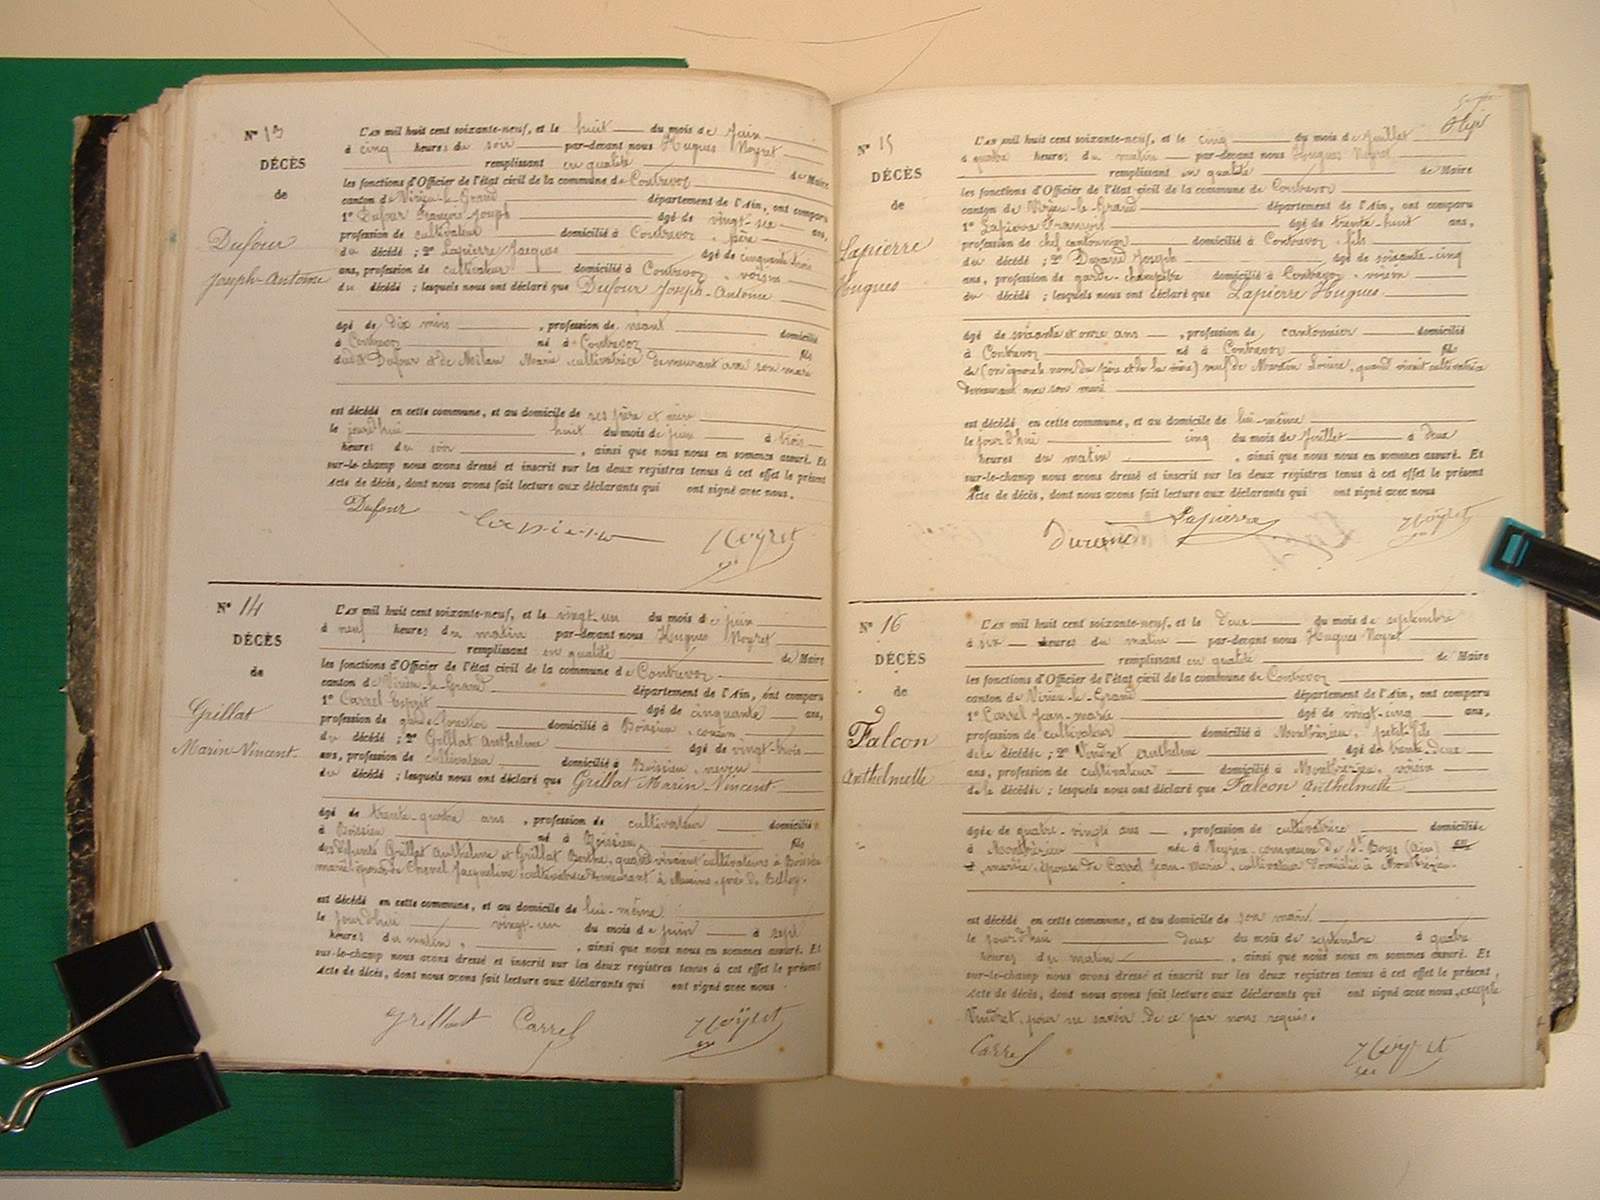 N° 13
DÉCÈS
de
Dufour
Joseph-Antoine
L'AN mil huit cent soixante-neuf, et le huit du mois de Juin
à cinq heures du soir par-devant nous Hugues Noyret
remplissant en qualité de Maire
les fonctions d'Officier de l'état civil de la commune de Contrevoz
canton de Virieu-le-Grand département de l'Ain, ont comparu
1° Dufour François-Joseph âgé de vingt-six ans,
profession de cultivateur domicilié à Contrevoz, père
du décédé ; 2° Lapierre Jacques âgé de cinquante-trois
ans, profession de cultivateur domicilié à Contrevoz, voisin
du décédé ; lesquels nous ont déclaré que Dufour Joseph-Antoine
âgé de dix mois, profession de néant domicilié
à Contrevoz né à Contrevoz fils
dudit Dufour et de Milan Marie, cultivatrice demeurant avec son mari
est décédé en cette commune, et au domicile de ses père et mère
le jourd'hui huit du mois de juin à trois
heures du soir, ainsi que nous nous en sommes assuré. Et
sur-le-champ nous avons dressé et inscrit sur les deux registres tenus à cet effet le présent
Acte de décès, dont nous avons fait lecture aux déclarants qui ont signé avec nous.
Dufour Lapierre Noyret
N° 14
DÉCÈS
de
Grillat
Marin-Vincent
L'AN mil huit cent soixante-neuf, et le vingt-un du mois de juin
à neuf heures du matin par-devant nous Hugues Noyret
remplissant en qualité de Maire
les fonctions d'Officier de l'état civil de la commune de Contrevoz
canton de Virieu-le-Grand département de l'Ain, ont comparu
1° Carrel Esprit âgé de cinquante ans,
profession de garde-forestier domicilié à Boissieu, cousin
du décédé ; 2° Grillat Anthelme âgé de vingt-trois
ans, profession de cultivateur domicilié à Boissieu, neveu
du décédé ; lesquels nous ont déclaré que Grillat Marin-Vincent
âgé de trente-quatre ans, profession de cultivateur domicilié
à Boissieu né à Boissieu fils
des défunts Grillat Anthelme et Grillat Berthe, quand vivaient cultivateurs à Boissieu
marié, époux de Chenel Jacqueline, cultivatrice demeurant à Musin, près de Belley.
est décédé en cette commune, et au domicile de lui-même
le jourd'hui vingt-un du mois de juin à sept
heures du matin, ainsi que nous nous en sommes assuré. Et
sur-le-champ nous avons dressé et inscrit sur les deux registres tenus à cet effet le présent
Acte de décès, dont nous avons fait lecture aux déclarants qui ont signé avec nous.
Grillat Carrel Noyret
N° 15
DÉCÈS
de
Lapierre
Hugues
L'AN mil huit cent soixante-neuf, et le cinq du mois de Juillet
à quatre heures du matin par-devant nous Hugues Noyret
remplissant en qualité de Maire
les fonctions d'Officier de l'état civil de la commune de Contrevoz
canton de Virieu-le-Grand département de l'Ain, ont comparu
1° Lapierre François âgé de trente-huit ans,
profession de chef cantonnier domicilié à Contrevoz, fils
du décédé ; 2° Durand Joseph âgé de soixante-cinq
ans, profession de garde-champêtre domicilié à Contrevoz, voisin
du décédé ; lesquels nous ont déclaré que Lapierre Hugues
âgé de soixante et onze ans, profession de cantonnier domicilié
à Contrevoz né à Contrevoz fils
de (on ignore le nom du père et de la mère) veuf de Louise, quand vivait cultivatrice
demeurant avec son mari
est décédé en cette commune, et au domicile de lui-même
le jourd'hui cinq du mois de Juillet à deux
heures du matin, ainsi que nous nous en sommes assuré. Et
sur-le-champ nous avons dressé et inscrit sur les deux registres tenus à cet effet le présent
Acte de décès, dont nous avons fait lecture aux déclarants qui ont signé avec nous
Durand Lapierre Noyret
N° 16
DÉCÈS
de
Falcon
Anthelmette
L'AN mil huit cent soixante-neuf, et le deux du mois de septembre
à six heures du matin par-devant nous Hugues Noyret
remplissant en qualité de Maire
les fonctions d'Officier de l'état civil de la commune de Contrevoz
canton de Virieu-le-Grand département de l'Ain, ont comparu
1° Carrel Jean-marie âgé de vingt-cinq ans,
profession de cultivateur domicilié à Montbrézieu, petit-fils
de la décédée ; 2° Vindret Anthelme âgé de trente-deux
ans, profession de cultivateur domicilié à Montbrézieu, voisin
de la décédée ; lesquels nous ont déclaré que Falcon Anthelmette
âgée de quatre-vingts ans, profession de cultivatrice domiciliée
à Montbrézieu née à Meyrieu, commune de St Boys (Ain)
mariée, épouse de Carrel Jean-Marie, cultivateur domicilié à Montbrézieu.
est décédé en cette commune, et au domicile de son mari
le jourd'hui deux du mois de septembre à quatre
heures du matin, ainsi que nous nous en sommes assuré. Et
sur-le-champ nous avons dressé et inscrit sur les deux registres tenus à cet effet le présent,
Acte de décès, dont nous avons fait lecture aux déclarants qui ont signé avec nous, excepté
Vindret, pour ne savoir de ce par nous requis.
Carrel Noyret